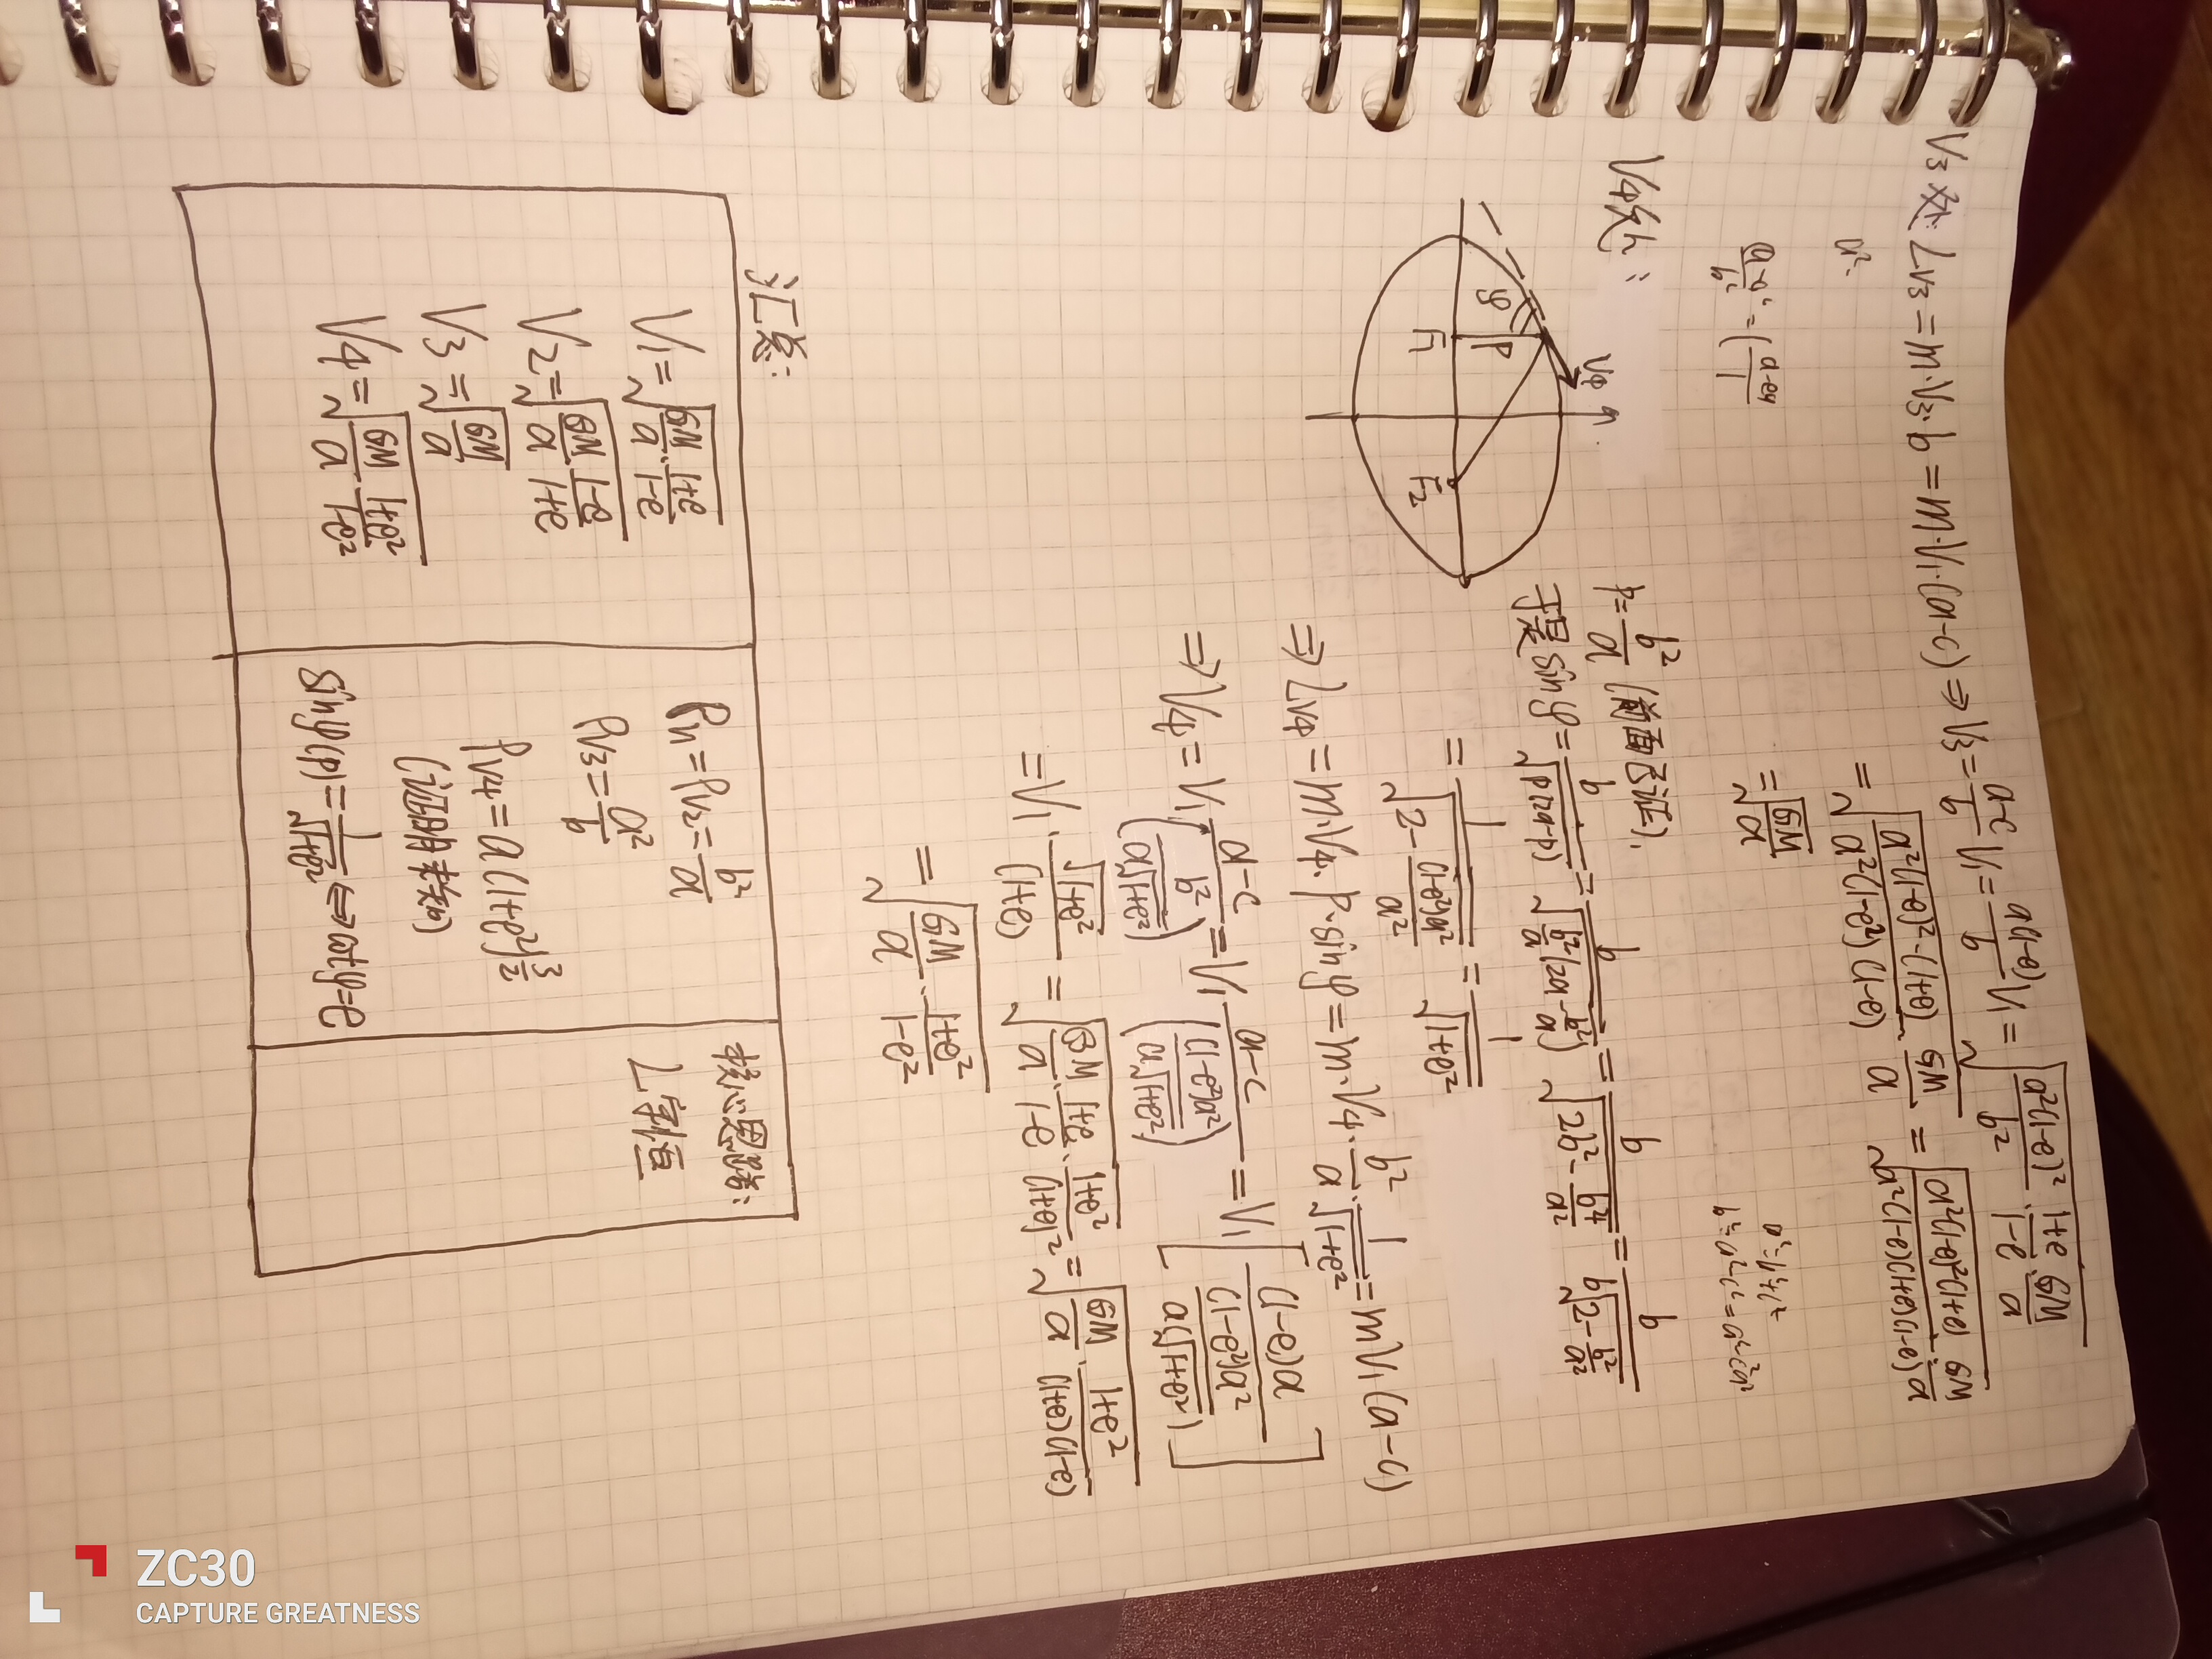 V₃处: L_{V3} = m·V₃·b = m·V₁·(a-c) ⇒ V₃ = \frac{a-c}{b} V₁ = \frac{a(1-e)}{b} V₁ = \sqrt{\frac{a²(1-e)²}{b²}·\frac{1+e}{1-e}\frac{GM}{a}}
= \sqrt{\frac{a²(1-e)²·(1+e)}{a²(1-e²)(1-e)}·\frac{GM}{a}} = \sqrt{\frac{a²(1-e)²(1+e)}{a²(1-e)(1+e)(1-e)}·\frac{GM}{a}}
= \sqrt{\frac{GM}{a}}
a²=b²+c²
b²=a²-c²=a²-e²a²
V₄处:
φ
P
V₄
F₁
F₂
p = \frac{b²}{a} (前面已证),
于是 sinφ = \frac{b}{\sqrt{p(2a-p)}} = \frac{b}{\sqrt{\frac{b²}{a}(2a-\frac{b²}{a})}} = \frac{b}{\sqrt{2b²-\frac{b⁴}{a²}}} = \frac{b}{b\sqrt{2-\frac{b²}{a²}}}
= \frac{1}{\sqrt{2-\frac{(1-e²)a²}{a²}}} = \frac{1}{\sqrt{1+e²}}
⇒ L_{V4} = m·V₄·p·sinφ = m·V₄·\frac{b²}{a}·\frac{1}{\sqrt{1+e²}} = mV₁(a-c)
⇒ V₄ = V₁·\frac{a-c}{(\frac{b²}{a\sqrt{1+e²}})} = V₁\frac{a-c}{(\frac{(1-e²)a²}{a\sqrt{1+e²}})} = V₁[\frac{(1-e)a}{\frac{(1-e²)a²}{a(\sqrt{1+e²})}}]
= V₁·\frac{\sqrt{1+e²}}{(1+e)} = \sqrt{\frac{GM}{a}·\frac{1+e}{1-e}·\frac{1+e²}{(1+e)²}} = \sqrt{\frac{GM}{a}·\frac{1+e²}{(1+e)(1-e)}}
= \sqrt{\frac{GM}{a}·\frac{1+e²}{1-e²}}
汇总:
V₁ = \sqrt{\frac{GM}{a}·\frac{1+e}{1-e}}
V₂ = \sqrt{\frac{GM}{a}·\frac{1-e}{1+e}}
V₃ = \sqrt{\frac{GM}{a}}
V₄ = \sqrt{\frac{GM}{a}·\frac{1+e²}{1-e²}}
ρ_{V1} = ρ_{V2} = \frac{b²}{a}
ρ_{V3} = \frac{a²}{b}
ρ_{V4} = a(1+e²)^{\frac{3}{2}}
sinφ(p) = \frac{1}{\sqrt{1+e²}} ⇔ cotφ=e
核心思路:
L守恒
ZC30
CAPTURE GREATNESS